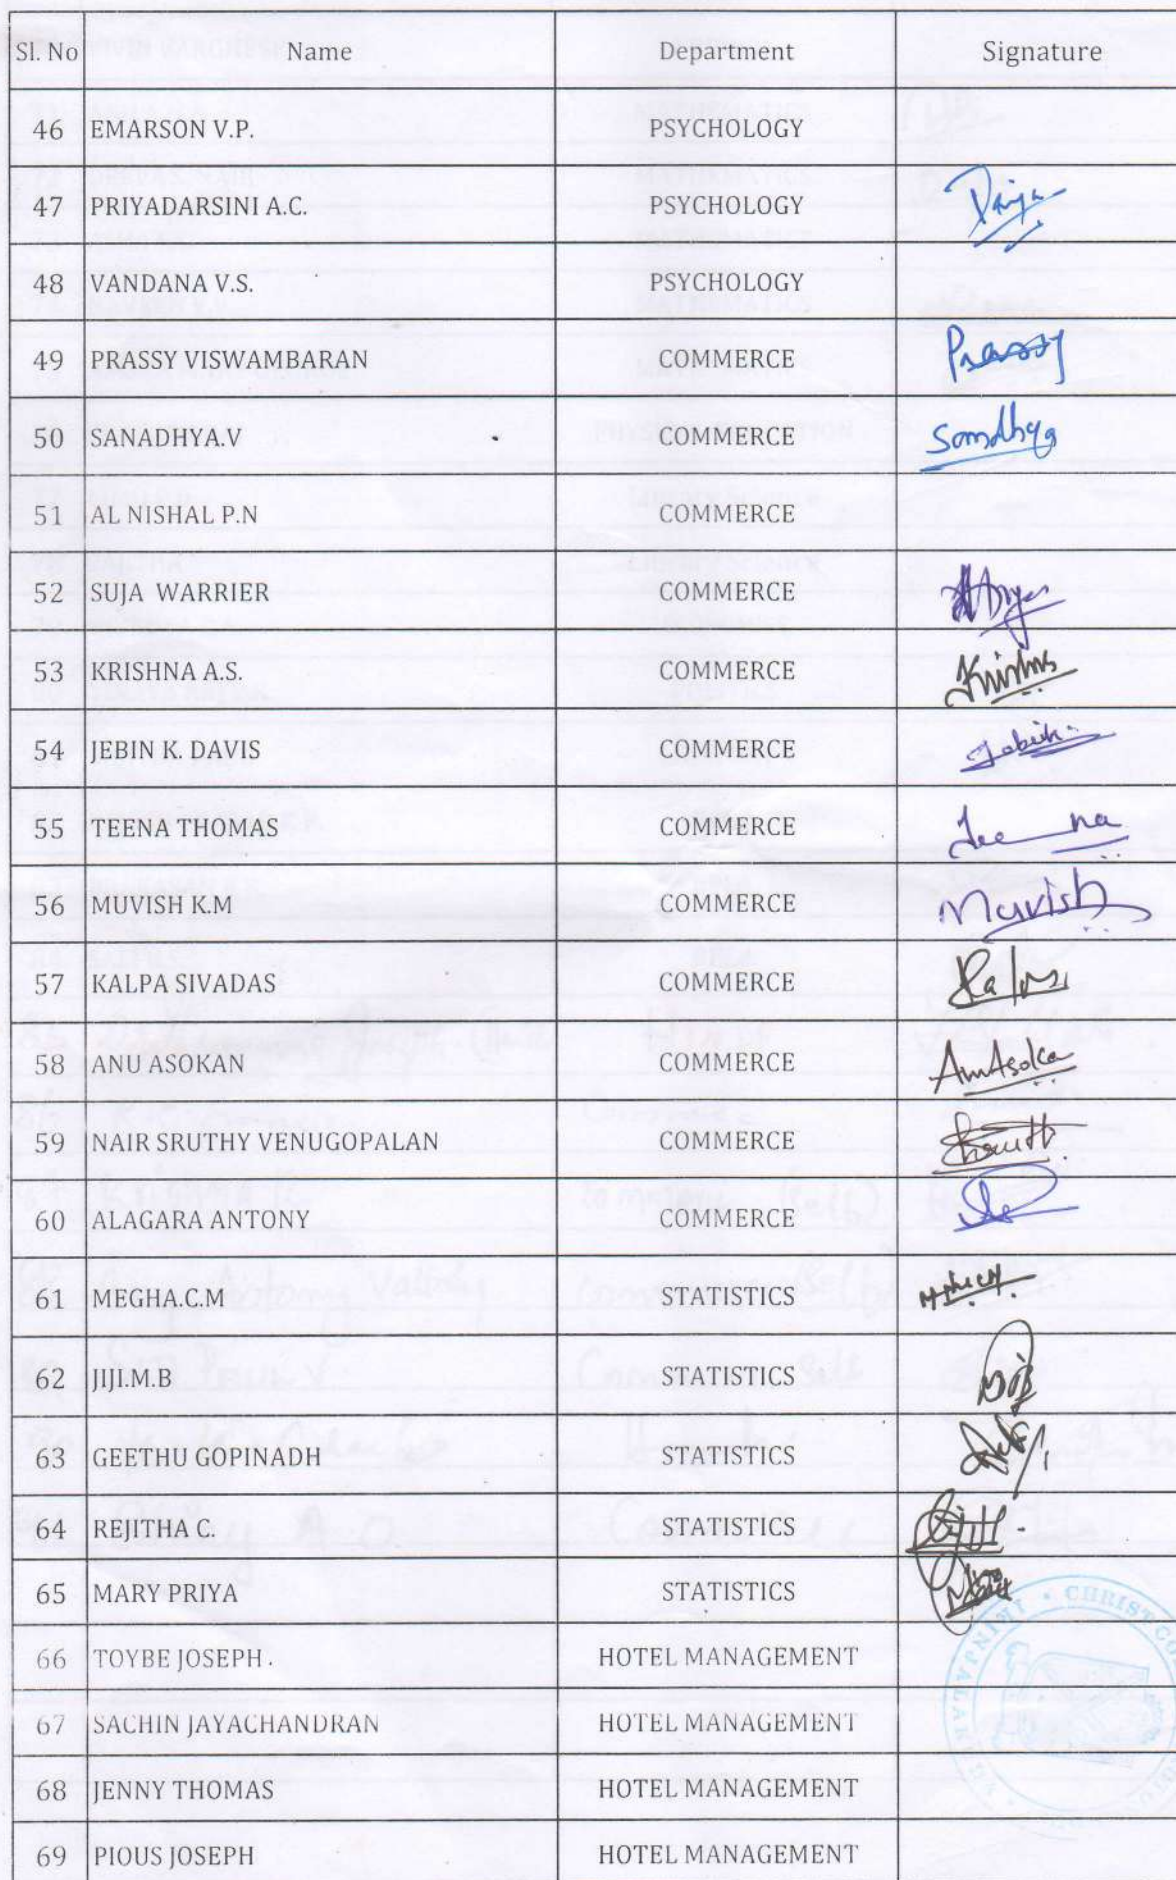 Sl. No Name Department Signature
46 EMARSON V.P. PSYCHOLOGY
47 PRIYADARSINI A.C. PSYCHOLOGY
48 VANDANA V.S. PSYCHOLOGY
49 PRASSY VISWAMBARAN COMMERCE Prassy
50 SANADHYA.V COMMERCE Sandhya
51 AL NISHAL P.N COMMERCE
52 SUJA WARRIER COMMERCE
53 KRISHNA A.S. COMMERCE Krishna
54 JEBIN K. DAVIS COMMERCE Jebin
55 TEENA THOMAS COMMERCE Teena
56 MUVISH K.M COMMERCE Muvish
57 KALPA SIVADAS COMMERCE
58 ANU ASOKAN COMMERCE AnuAsoka
59 NAIR SRUTHY VENUGOPALAN COMMERCE
60 ALAGARA ANTONY COMMERCE
61 MEGHA.C.M STATISTICS
62 JIJI.M.B STATISTICS
63 GEETHU GOPINADH STATISTICS
64 REJITHA C. STATISTICS
65 MARY PRIYA STATISTICS
66 TOYBE JOSEPH . HOTEL MANAGEMENT
67 SACHIN JAYACHANDRAN HOTEL MANAGEMENT
68 JENNY THOMAS HOTEL MANAGEMENT
69 PIOUS JOSEPH HOTEL MANAGEMENT
CHRIST